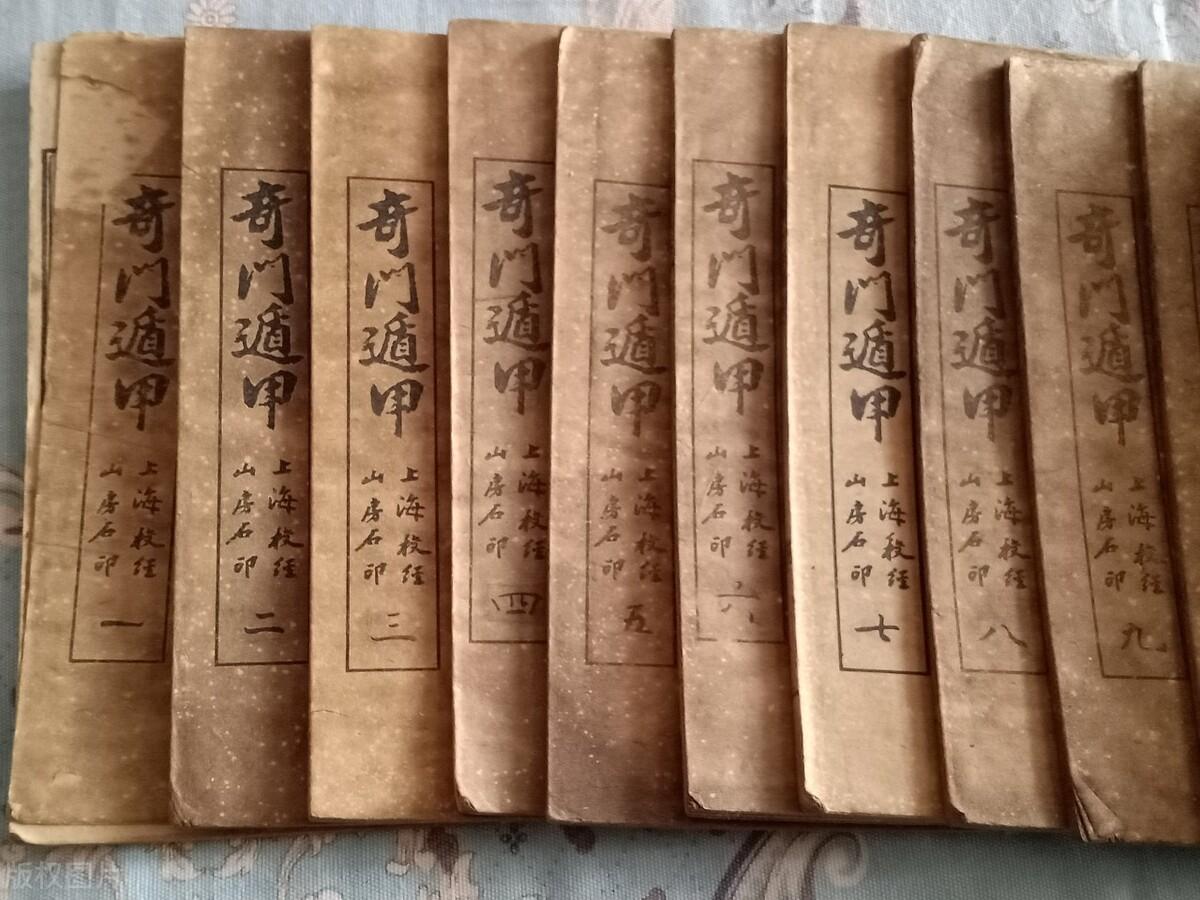 奇門遁甲
上海校經
山房石印
一
奇門遁甲
上海校經
山房石印
二
奇門遁甲
上海校經
山房石印
三
奇門遁甲
上海校經
山房石印
四
奇門遁甲
上海校經
山房石印
五
奇門遁甲
上海校經
山房石印
六
奇門遁甲
上海校經
山房石印
七
奇門遁甲
上海校經
山房石印
八
奇門遁甲
上海校經
山房石印
九
版权图片